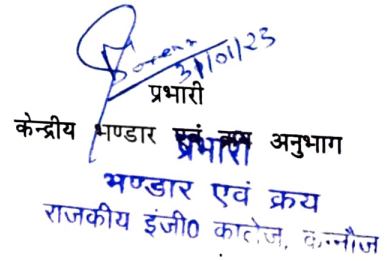 31/01/23
प्रभारी
केन्द्रीय भण्डार एवं क्रय अनुभाग
प्रभारी
भण्डार एवं क्रय
राजकीय इंजी0 कालेज, कन्नौज